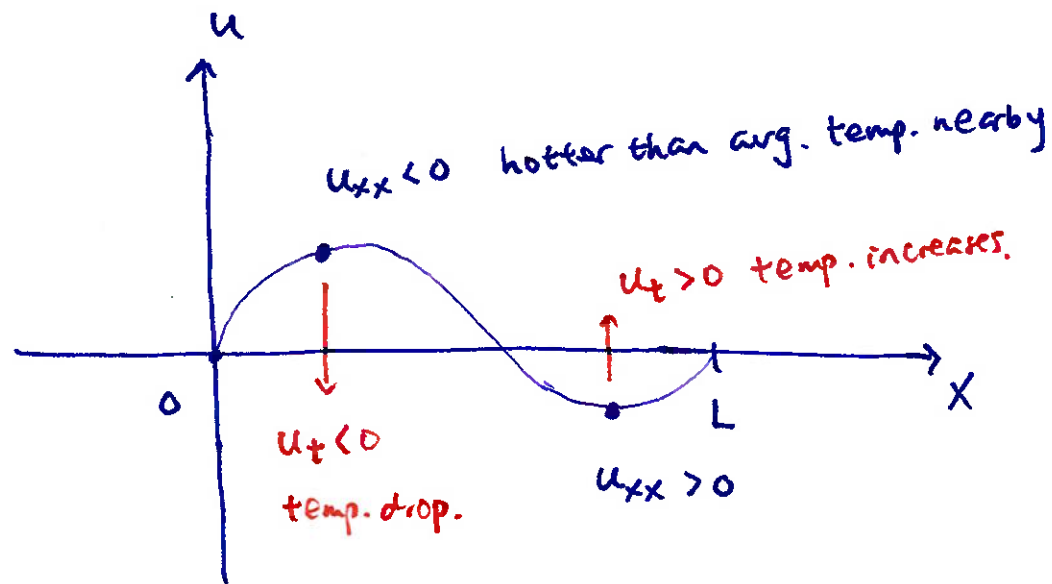 u
u_xx < 0 hotter than avg. temp. nearby
u_t > 0 temp. increases.
0
X
L
u_t < 0
temp. drop.
u_xx > 0